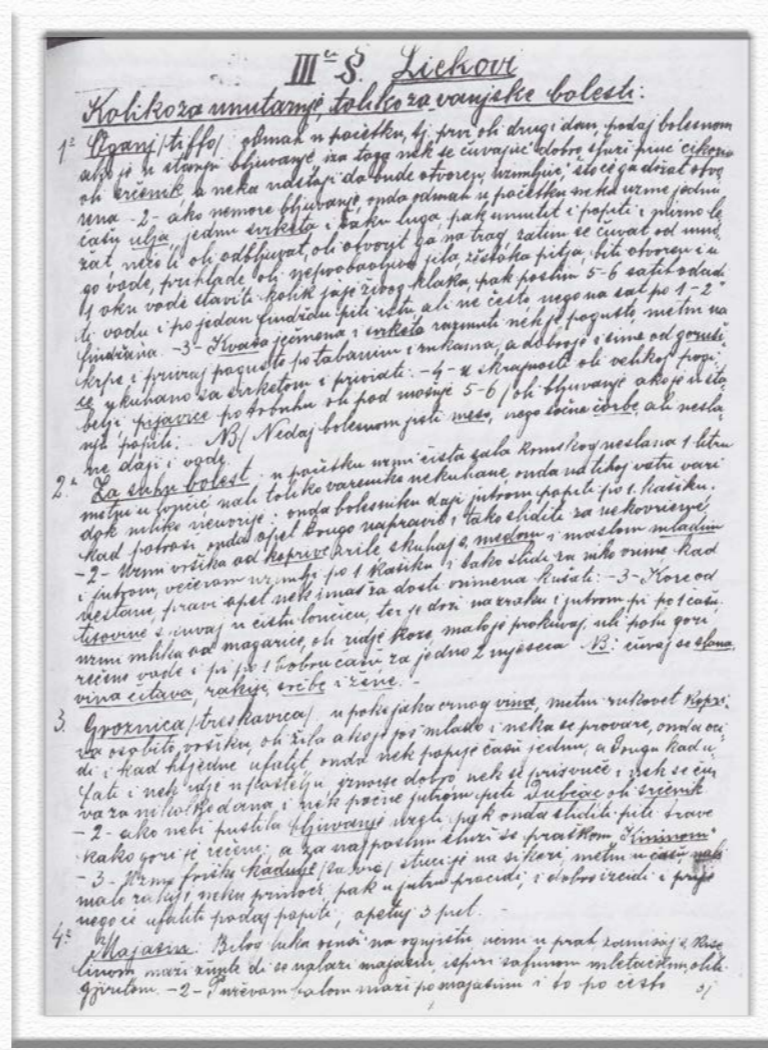 III S. Liekovi
Koliko za unutarnje, toliko za vanjske bolesti:
1. Oganj /tiffo/ odmah u početku, tj. prvi oli drugi dan, podaj bolesnom
ako je u stanju bljuvanje, iza toga nek se čuvajuć dobro
oli srčenik a neka nastoji da bude otvoren,
rena -2- ako nemore bljuvanje, onda odmah u početku neka uzme jednu
čašu ulja, jednu svrketa i šaku luga, pak umutit i popiti i mirno le
žat, neće li oli odbljuvat, oli otvorit ga na trag, zatim se čuvat od
go vode, prihlade oli jila, žistoka pitja, biti otvoren i u
1 oku vode staviti kolik jaje živog klaka, pak poslin 5-6 satih odadi
ti vodu i po jedan findžan piti istu ali ne često, nego na sat po 1-2
findžana. -3- Kvasa ječmena i svrketa razmuti nek je pogusto, metni na
krpe i privraj pogusto po tabanim i rukama, a dobro je i sime od goruši
ce skuhano sa svrketom i prividati: -4- u skrajnosti oli velikoj pogi
belji pijavice po trbuhu oli pod mošnje 5-6/ oli bljuvanje ako je u sta
nju popiti. NB/ Nedaj bolesnom jisti meso, nego sočne čorbe, ali nesla
ne daji i vode.
2. Za suhu bolest u početku uzmi čista sala krmskog neslana 1 litru
metni u lončić nali toliko varenike nekuhane, onda na tihoj vatri vari
dok mliko neuvrije, onda bolesniku daji jutrom popiti po 1 kašiku.
kad potroši onda opet drugo napraviti i tako sliditi za
-2- Uzmi vršika od koprive zrile skuhaj s medom i maslom mladim
i jutrom, večerom uzimlji po 1 kašiku i tako slidi za niko vrime kad
nestane, pravi opet nek imaš za dosti vrimena kušati: -3- Kore od
tisovine sčuvaj u čistu lončiću, ter je drži na zraku i jutrom pi po 1 čašu
uzmi mlika od magarice, oli ridje koze, malo je prokuvaj, uli polu gori
rečene vode i pi po 1 dobru čašu za jedno 2 mjeseca NB: čuvaj se slana,
vina citava, rakije, srčbe i žene. -
3. Groznica /treskavica/ u pol crnog vina, metni rukovet kopri
va osobito, vršiku, oli žila ako je još mlado i neka se provare, onda oci
di i kad htjedne ufatit onda nek popije čašu jednu, a drugu kad u
fati i nek idje u postelju, iznoje dobro nek se prisvuče i nek se ču
va za nikoliko dana, i nek počne jutrom piti Dubčac oli srčenik
-2- ako nebi pustila bljuvanje uzeti pak onda sliditi piti trave
kako gori je rečeno; a za naj poslin služi se praškom "Kininom"
-3- Uzmi friške kadulje stuci je na sikiri, metni u čašu nali
malo rakije, neka prinoći pak u jutro procidi, i dobro izcidi i prije
nego će ufatiti podaj popiti, opetuj 3 put.
4. Majasin: Bilog luka osuši na ognjištu, usmi u prah, zamisaj s kise
linom maži žunte di se nalazi majasin, isperi safunom mletačkim, oli
-2- Purževom salom maži po majasinu i to po često